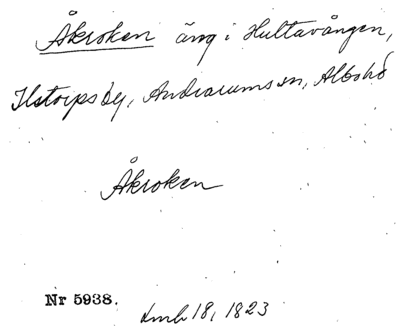 Åkroken äng i Hultavången,
Ilstorps by, Andrarums sn, Albo hd
Åkroken
Nr 5938.
Lmh 18, 1823